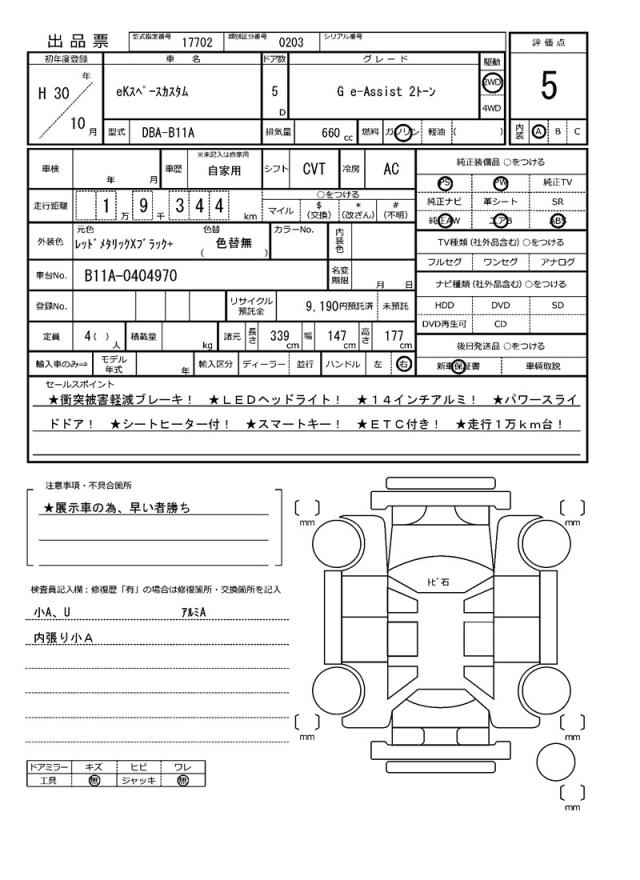 出品票 型式指定番号 17702 類別区分番号 0203 シリアル番号
初年度登録 車名 ドア数 グレード 駆動 評価点
H 30 年 10 月 eKスペースカスタム 5 D G e-Assist 2トーン 2WD 4WD 5
型式 DBA-B11A 排気量 660 cc 燃料 ガソリン 軽油 ( ) 内装 A B C
車検 年 月 車歴 ※未記入は自家用 自家用 シフト CVT 冷房 AC 純正装備品 ○をつける
PS PW 純正TV
走行距離 1 万 9 千 3 4 4 km ○をつける 純正ナビ 革シート SR
マイル $ (交換) * (改ざん) # (不明) 純正AW エアB ABS
外装色 元色 レッドメタリックXブラック+ 色替 色替無 ( ) カラーNo. 内装色 TV種類 (社外品含む) ○をつける
フルセグ ワンセグ アナログ
車台No. B11A-0404970 名変期限 月 日 ナビ種類 (社外品含む) ○をつける
登録No. リサイクル預託金 9,190円預託済 未預託 HDD DVD SD
DVD再生可 CD
定員 4( ) 人 積載量 kg 諸元 長さ 339 cm 幅 147 cm 高さ 177 cm 後日発送品 ○をつける
輸入車のみ⇒ モデル年式 年 輸入区分 ディーラー 並行 ハンドル 左 右 新車保証書 車輌取説
セールスポイント
★衝突被害軽減ブレーキ! ★LEDヘッドライト! ★14インチアルミ! ★パワースライ
ドドア! ★シートヒーター付! ★スマートキー! ★ETC付き! ★走行1万km台!
注意事項・不具合箇所
★展示車の為、早い者勝ち
mm mm
トビ石
検査員記入欄:修復歴「有」の場合は修復箇所・交換箇所を記入
小A、U アルミA
内張り小A
mm mm
ドアミラー キズ ヒビ ワレ
工具 無 ジャッキ 無
mm